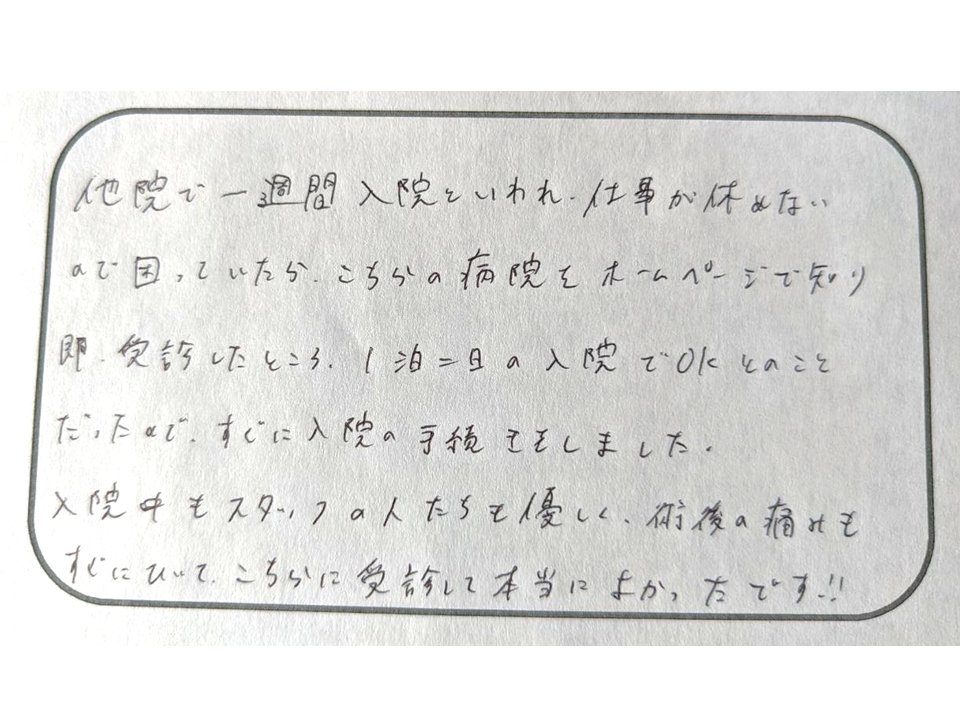 他院で一週間入院といわれ、仕事が休めない
ので困っていたが、こちらの病院をホームページで知り
即、受診したところ、1泊二日の入院でOKとのこと
だったので、すぐに入院の手続きをしました。
入院中もスタッフの人たちも優しく、術後の痛みも
すぐにひいて、こちらに受診して本当によかったです!!